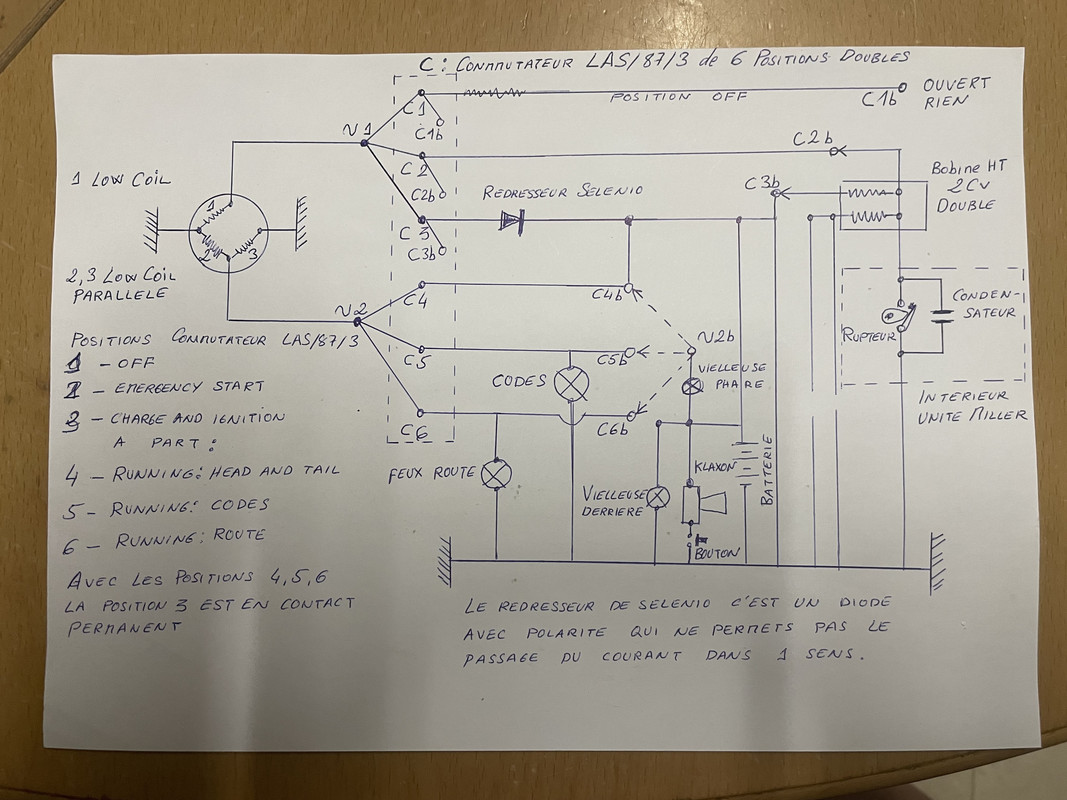 C: COMMUTATEUR LAS/87/3 de 6 POSITIONS DOUBLES
C1
C1b
POSITION OFF
C1b
OUVERT
RIEN
V1
C2
C2b
C2b
1 LOW COIL
REDRESSEUR SELENIO
C3b
Bobine HT
2CV
DOUBLE
C3
C3b
1
2
3
2,3 LOW COIL
PARALLELE
V2
C4
C4b
V2b
CONDEN-
SATEUR
RUPTEUR
C5
C5b
CODES
VIELLEUSE
PHARE
INTERIEUR
UNITE MILLER
C6
C6b
FEUX ROUTE
KLAXON
BATTERIE
VIELLEUSE
DERRIERE
BOUTON
POSITIONS COMMUTATEUR LAS/87/3
1 - OFF
2 - EMERGENCY START
3 - CHARGE AND IGNITION
A PART:
4 - RUNNING: HEAD AND TAIL
5 - RUNNING: CODES
6 - RUNNING: ROUTE
AVEC LES POSITIONS 4,5,6
LA POSITION 3 EST EN CONTACT
PERMANENT
LE REDRESSEUR DE SELENIO C'EST UN DIODE
AVEC POLARITE QUI NE PERMETS PAS LE
PASSAGE DU COURANT DANS 1 SENS.